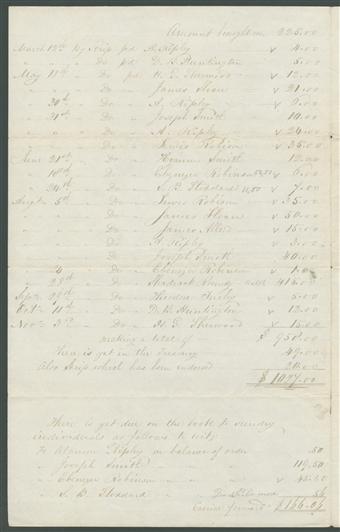 Amount brought on 225.00
March 12th By Scrip pd A. Ripley v 4.00
" " " Do pd D. B. Huntington 5.00
May 11th " Do " H. G. Sherwood v 12.00
" " " Do " James Sloan v 21.00
" 20th " Do " A. Ripley v 9.00
" 21st " Do " Joseph Smith 10.00
" " " Do " A. Ripley v 20.00
" " " Do " Lewis Robison v 25.00
June 21st " Do " Hyrum Smith 12.00
" " Do " Ebenezer Robinson v
" " Do " S. B. Stoddard v 7.00
Augt 5th " Do " Lewis Robison v 35.00
" " " Do " James Sloan v 50.00
" " " Do " James Allred v 15.00
" " " Do " A. Ripley v 3.00
" " " Do " Joseph Smith 40.00
" " Do " Ebenezer Robinson v
" " Do " Shadrach Roundy
Sept " Do " v 5.00
Oct 11th " Do " D. B. Huntington v 12.00
Novr " Do " H. G. Sherwood v 15.00
making a total of $ 958.00
There is yet in the Treasury 49.00
Also Scrip which has been endorsed 20.00
$ 1027.00
There is yet due on the book to sundry
individuals as follows to wit;
To Alanson Ripley on balance of order 50
" Joseph Smith " 119.50
" Ebenezer Robinson "
" S. B. Stoddard "
Carried forward $166.04